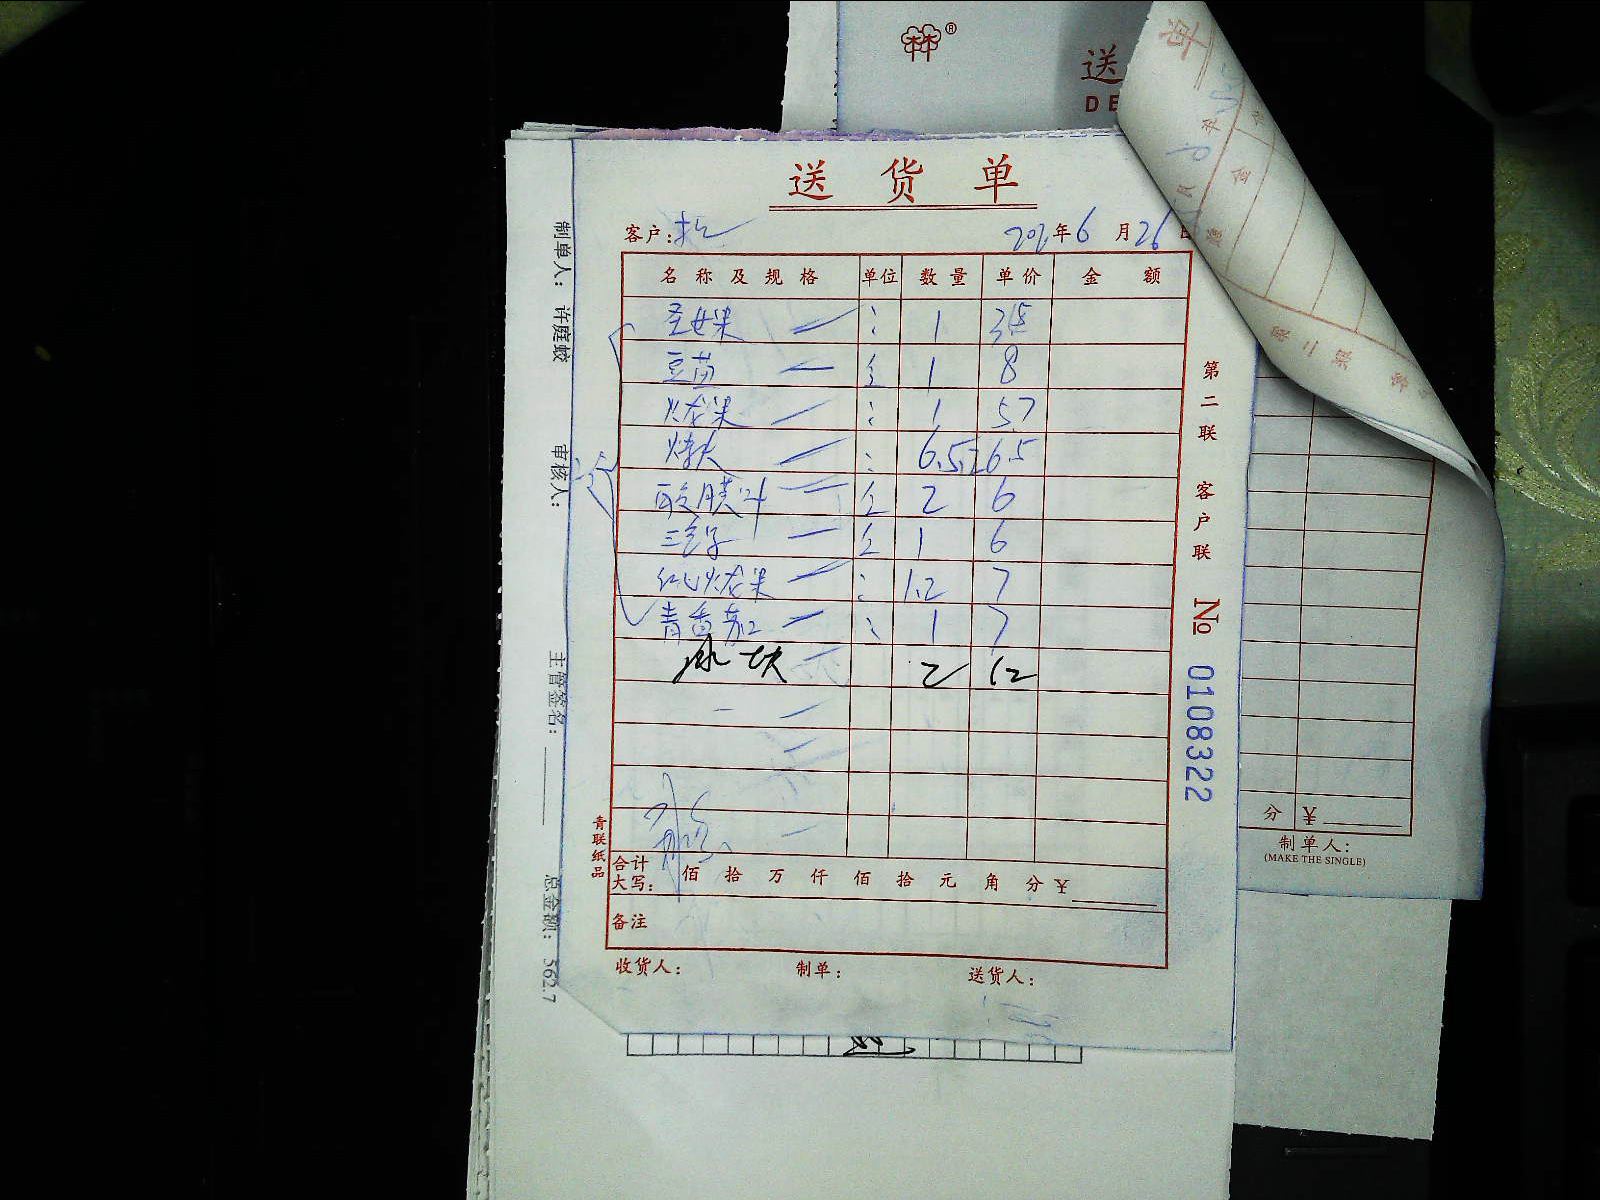 ®
送
DE
送货单
客户:
年6月26日
名称及规格 单位 数量 单价 金额
圣女果 1 35
豆苗 1 8
火龙果 1 57
6.5 26.5
2 6
1 6
红心火龙果 1.2 7
青番茄 1 7
冰块 2 12
合计
大写: 佰 拾 万 仟 佰 拾 元 角 分 ¥
备注
收货人: 制单: 送货人:
青联纸品
第二联 客户联
№ 0108322
制单人: 许庭蛟 审核人: 主管签名: 总金额: 562.7
分 ¥
制单人:
(MAKE THE SINGLE)